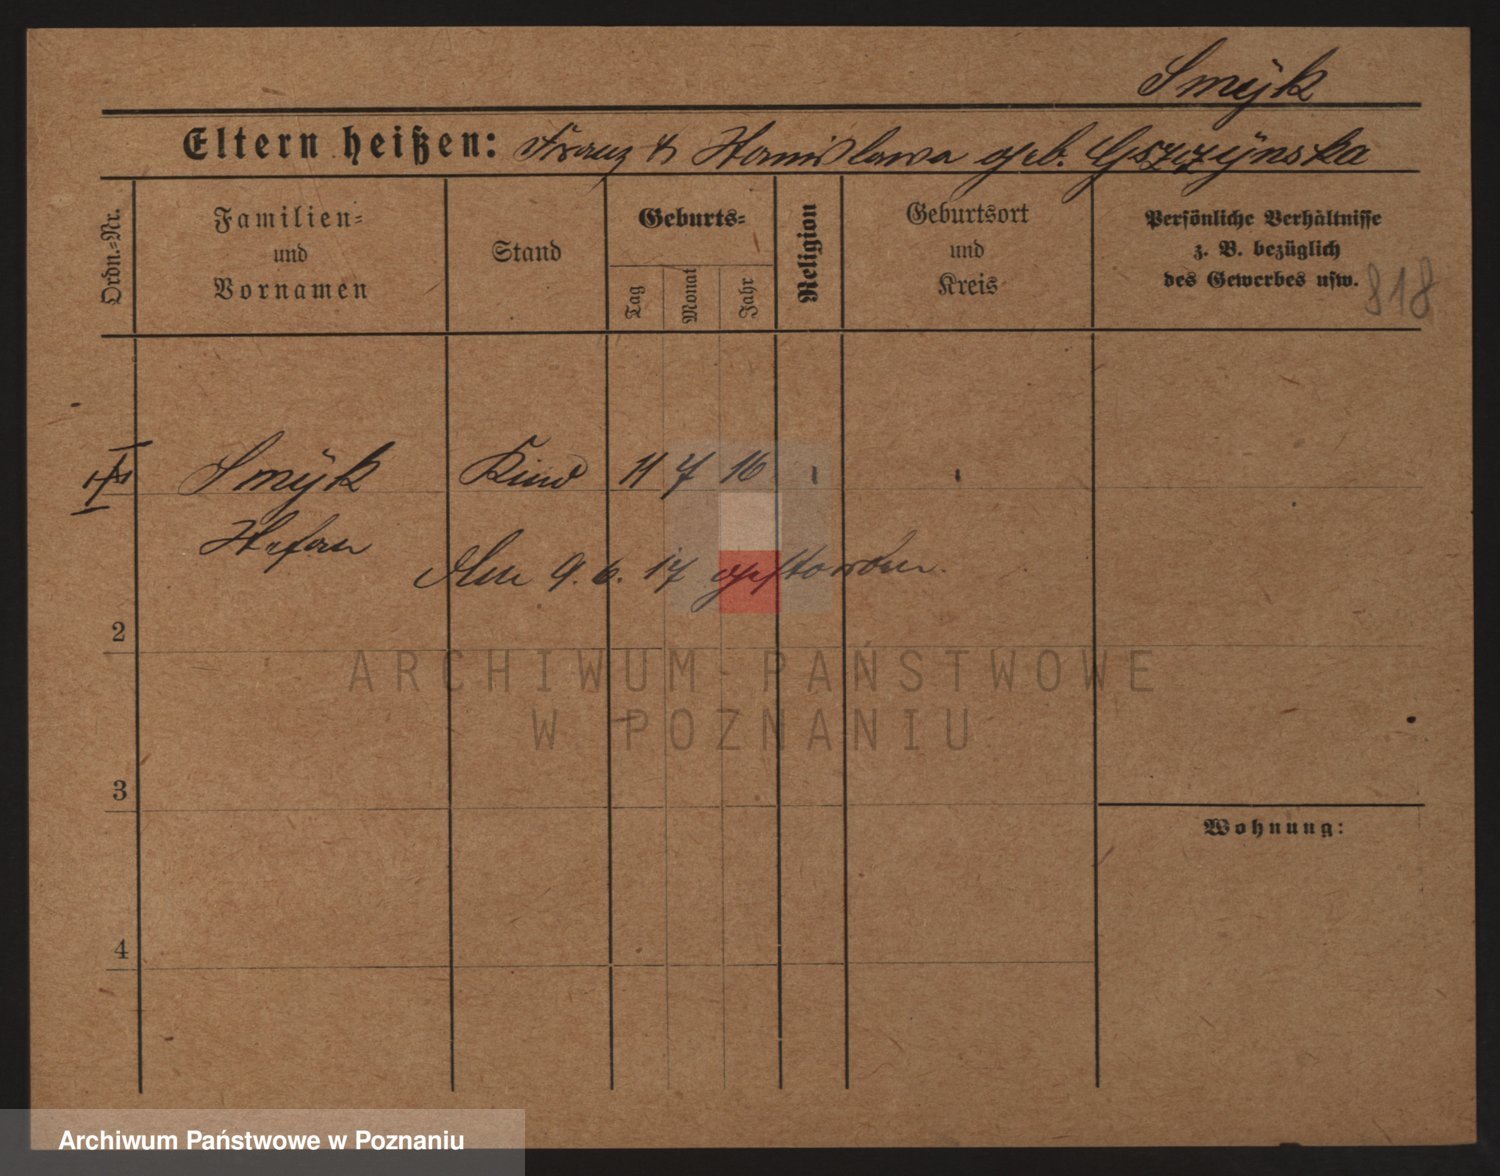 Smÿk
Eltern heißen: Franz & Stanislawa geb. Gszczÿnska
Ordn.-Nr.
Familien-
und
Vornamen
Stand
Geburts-
Tag
Monat
Jahr
Religion
Geburtsort
und
Kreis
Persönliche Verhältnisse
z. B. bezüglich
des Gewerbes usw.
818
Smÿk Kind 11 7 16
Stefan
Am 9. 6. 17 gestorben.
2
ARCHIWUM PAŃSTWOWE
W POZNANIU
3
Wohnung:
4
Archiwum Państwowe w Poznaniu